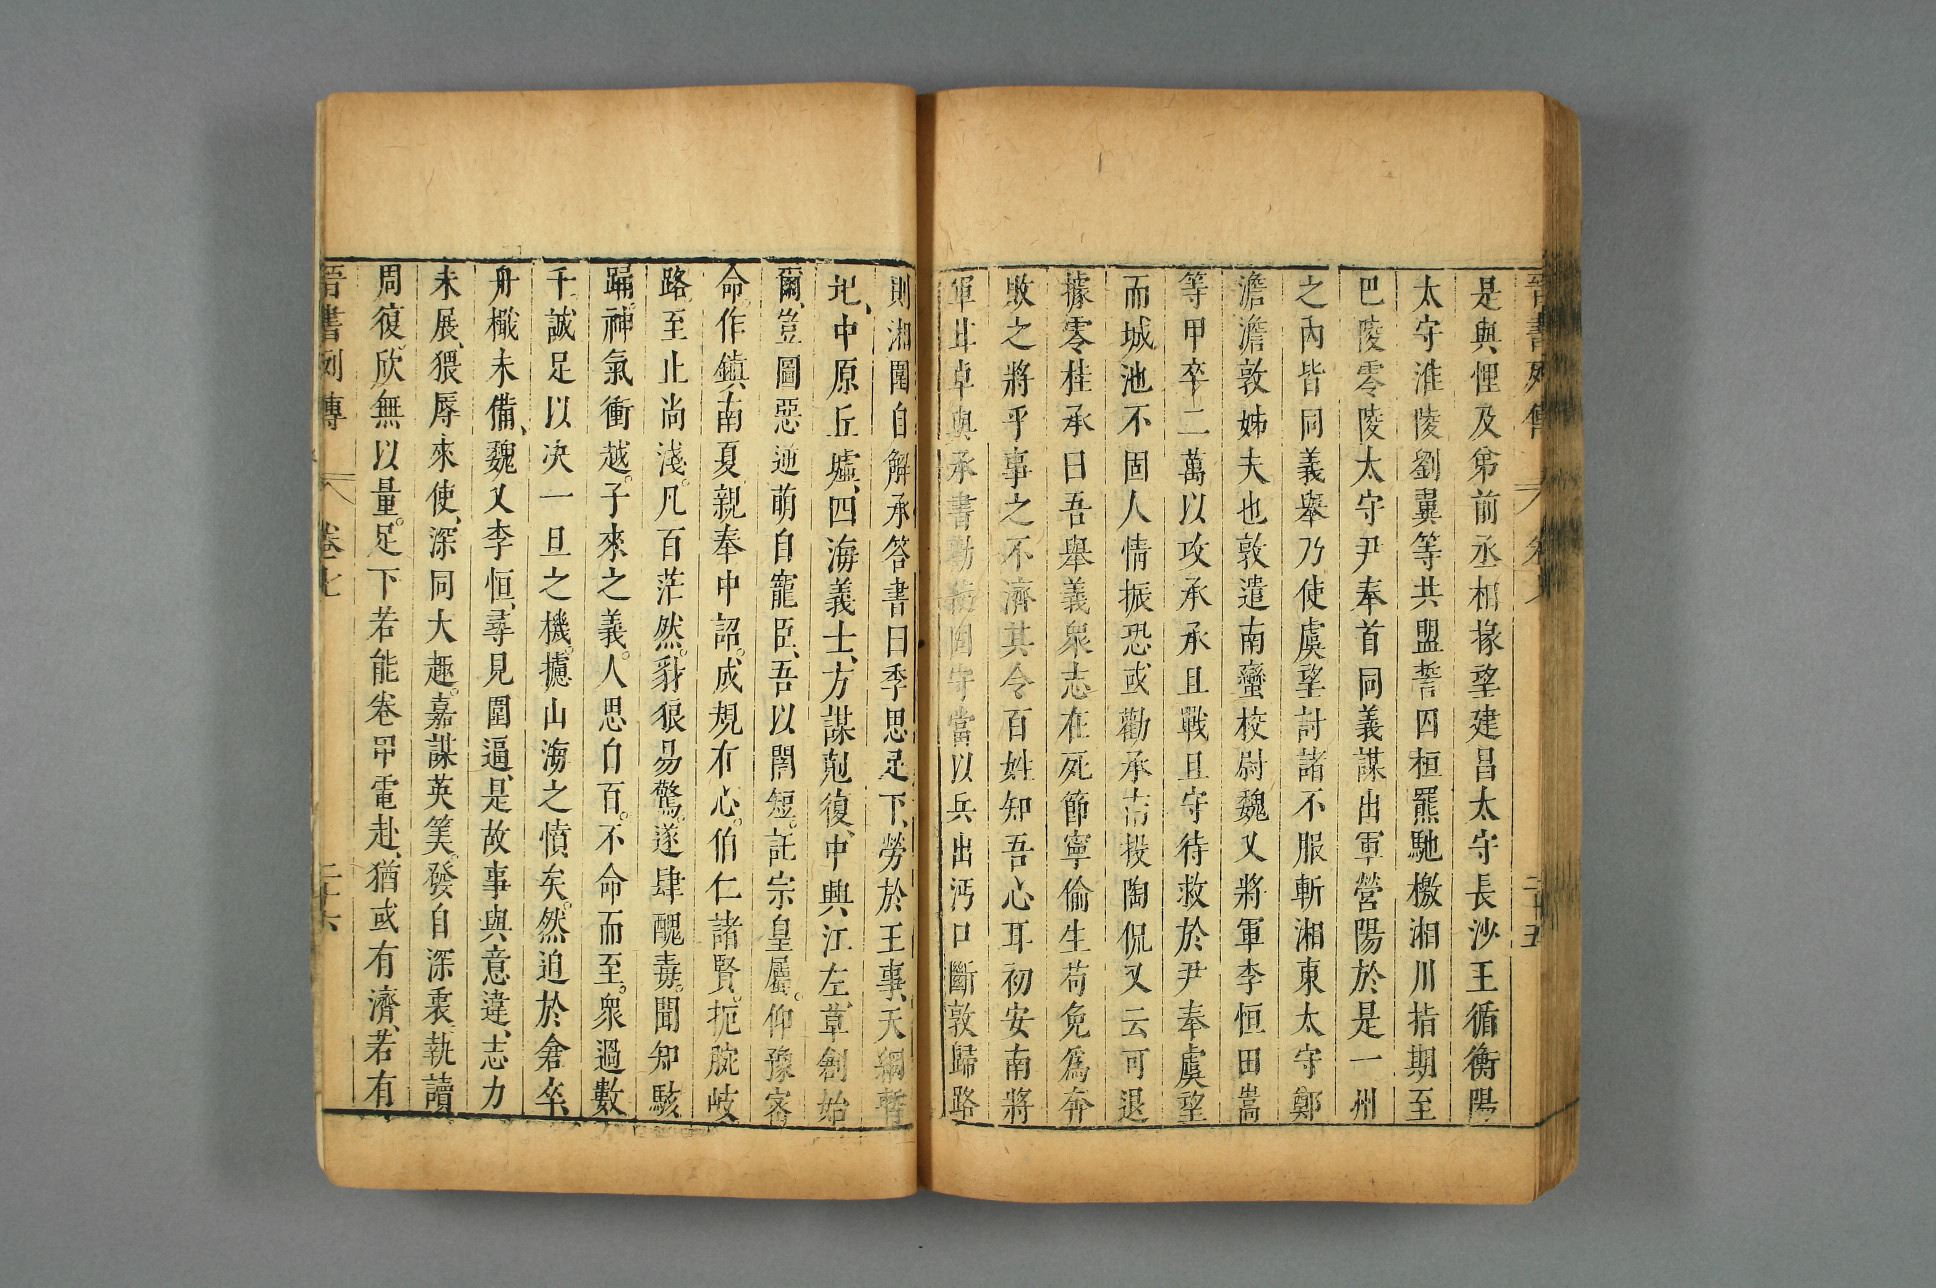 晉書列傳 卷七 二十五
是與悝及弟前丞相掾望建昌太守長沙王循衡陽
太守淮陵劉翼等共盟誓囚桓羆馳檄湘川指期至
巴陵零陵太守尹奉首同義謀出軍營陽於是一州
之內皆同義舉乃使虞望討諸不服斬湘東太守鄭
澹澹敦姊夫也敦遣南蠻校尉魏乂將軍李恒田嵩
等甲卒二萬以攻承承且戰且守待救於尹奉虞望
而城池不固人情振恐或勸承南投陶侃又云可退
據零桂承曰吾舉義衆志在死節寧偷生苟免爲奔
敗之將乎事之不濟其令百姓知吾心耳初安南將
軍甘卓與承書勸使固守當以兵出沔口斷敦歸路
則湘圍自解承答書曰季思足下、勞於王事、天綱暫
圮、中原丘墟、四海義士、方謀剋復、中興、江左、草創始
爾、豈圖惡逆萌自寵臣、吾以闇短。託宗皇屬。仰豫密
命。作鎮南夏親奉中詔。成規在心。伯仁諸賢。扼腕岐
路。至止尚淺。凡百茫然。豺狼易驚。遂肆醜毒。聞知駭
踊。神氣衝越。子來之義。人思自百。不命而至。衆過數
千。誠足以决一旦之機。攄山海之憤矣。然迫於倉卒、
舟檝未備、魏乂李恒、尋見圍逼、是故事與意違、志力
未展、猥辱來使、深同大趣。嘉謀英筭。發自深衷執讀
周復。欣無以量。足下若能卷甲電赴、猶或有濟、若有
晉書列傳 卷七 二十六